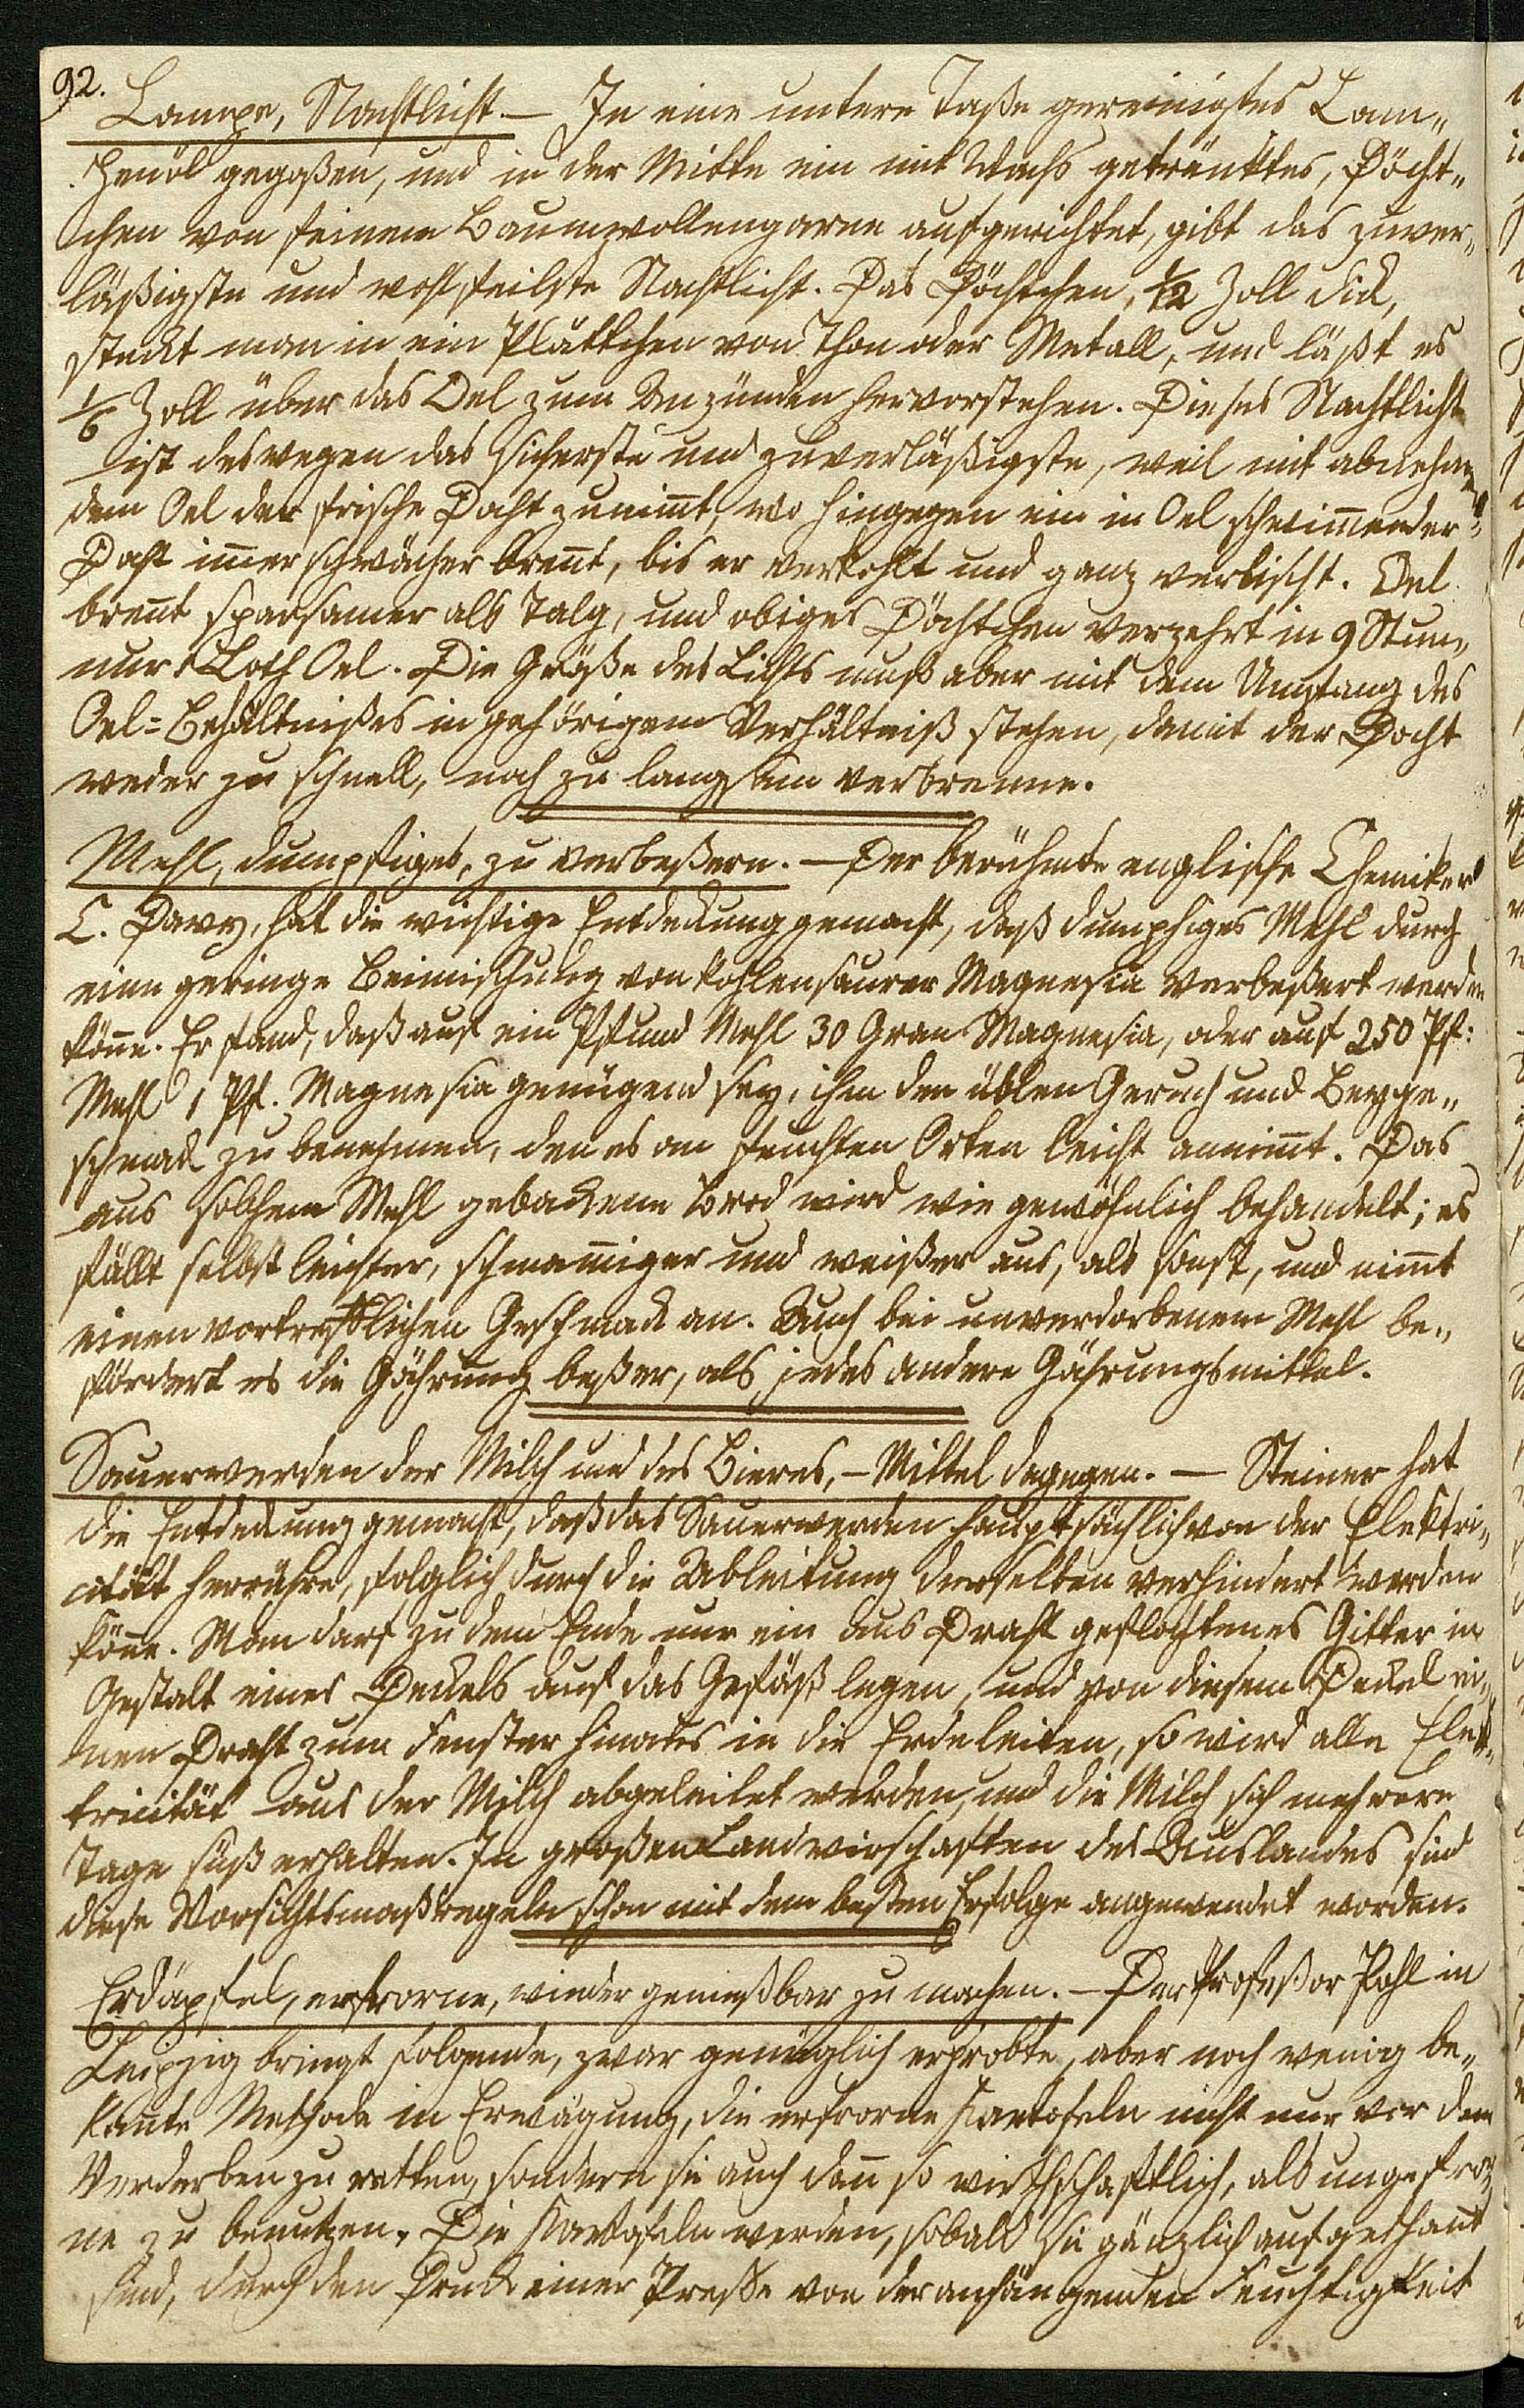 92.
Lampe, Nachtlicht. — In eine untere Taße gereinigtes Lam„
penöl gegoßen, und in der Mitte ein mit Wachs getränktes, Döcht„
chen von feinem Baumwollengarne aufgerichtet, gibt das zuver„
läßigste und wohlfeilste Nachtlicht. Das Döchtchen, 1/12 Zoll dick,
steckt man in ein Plättchen von Thon oder Metall, und läßt es
1/6 Zoll über das Oel zum Anzünden hervorstehen. Dieses Nachtlicht
ist deswegen das sicherste und zuverläßigste, weil mit abnehmen„
dem Oel der frische Docht zunim̄t, wo hingegen ein in Oel schwim̄ender
Docht im̄er schwächer bren̄t, bis er verkohlt und ganz verlischt. Oel
bren̄t sparsamer als Talg, und obiges Döchtchen verzehrt in 9 Stun„
nur 1 Loth Oel. Die Größe des Lichts muß aber mit dem Umfang des
Oel=Behältnißes in gehörigem Verhältniß stehen, damit der Docht
weder zu schnell, noch zu langsam verbrenne.
Mehl, dumpfiges, zu verbeßern. — Der berühmte englische Chemiker
C. Davy, hat die wichtige Entdeckung gemacht, daß dumpfiges Mehl durch
eine geringe Beimischung von kohlensaurer Magnesia verbeßert werden
kön̄e. Er fand, daß auf ein Pfund Mehl 30 Gran Magnesia, oder auf 250 Pf:
Mehl 1 Pf. Magnesia genügend sey, ihm den üblen Geruch und Beyge„
schmack zu benehmen, den es an feuchten Orten leicht annim̄t. Das
aus solchem Mehl gebackene Brod wird wie gewöhnlich behandelt; es
fällt selbst leichter, schwam̄iger und weißer aus, als sonst, und nim̄t
einen vortrefflichen Geschmack an. Auch bei unverdorbenem Mehl be„
fördert es die Gährung beßer, als jedes andere Gährungsmittel.
Sauerwerden der Milch und des Bieres, — Mittel dagegen. — Steiner hat
die Entdeckung gemacht, daß das Sauerwerden hauptsächlich von der Elektri„
cität herrühre, folglich durch die Ableitung derselben verhindert werden
kön̄e. Man darf zu dem Ende nur ein aus Draht geflochtenes Gitter in
Gestalt eines Deckels auf das Gefäß legen, und von diesem Deckel ei„
nen Draht zum Fenster hinaus in die Erde leiten, so wird alle Elek„
tricität aus der Milch abgeleitet werden, und die Milch sich mehrere
Tage süß erhalten. In großen Landwirschaften des Auslandes sind
diese Vorsichtsmaßregeln schon mit dem besten Erfolge angewendet worden.
Erdäpfel, erfrorne, wieder genießbar zu machen. — Der Profeßor Pohl in
Leipzig bringt folgende, zwar genüglich erprobte, aber noch wenig be„
kan̄te Methode in Erwägung, die erfrorne Kartofeln nicht nur vor dem
Verderben zu retten, sondern sie auch dan̄ so wirthschaftlich, als ungefror„
ne zu benutzen. Die Kartofeln werden, sobald sie gänzlich aufgethaut
sind, durch den Druck einer Presse von der anhängenden Feuchtigkeit